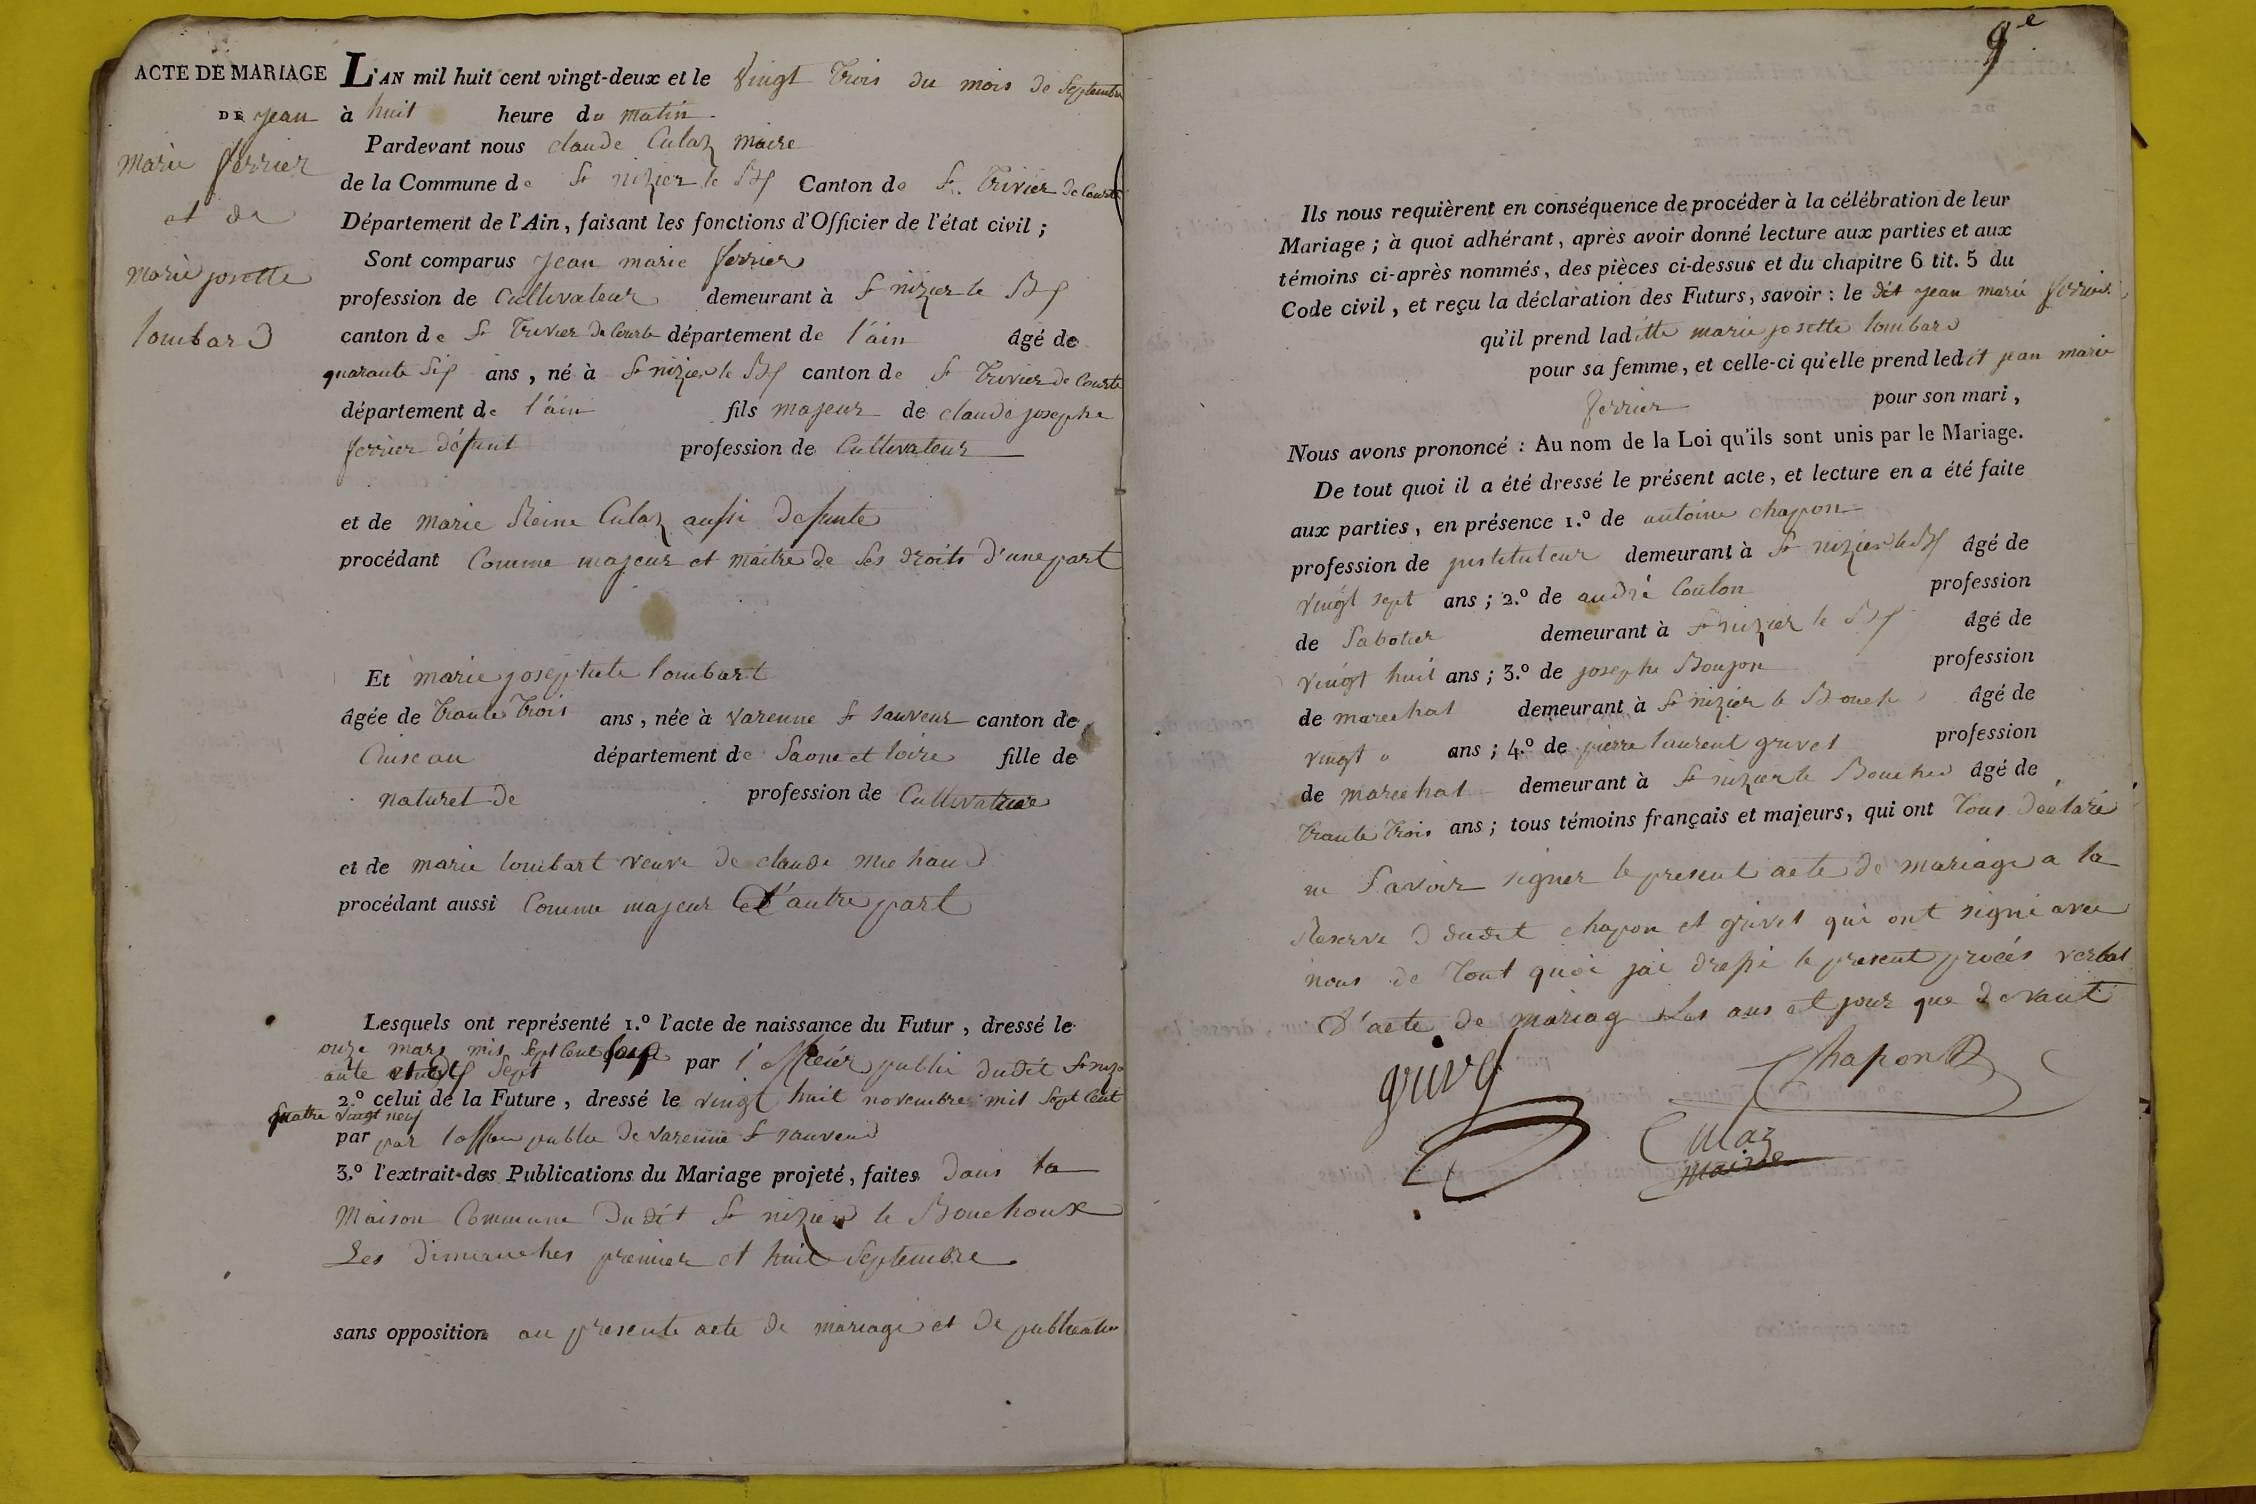 ACTE DE MARIAGE
DE jean
marie ferrier
et de
marie josette
lombard
L'AN mil huit cent vingt-deux et le vingt trois du mois de septembre
à huit heure du matin
Pardevant nous claude Culaz maire
de la Commune de St nizier le Bx Canton de St. Trivier de Courte
Département de l'Ain, faisant les fonctions d'Officier de l'état civil ;
Sont comparus jean marie ferrier
profession de Cultivateur demeurant à St nizier le Bx
canton de St Trivier de Courte département de l'ain âgé de
quarante six ans, né à St nizier le Bx canton de St Trivier de Courte
département de l'ain fils majeur de claude josephe
ferrier défunt profession de Cultivateur
et de marie Reine Culaz aussi defunte
procédant Comme majeur et maitre de ses droits d'une part
Et marie josephete lombart
âgée de trante trois ans, née à varenne St sauveur canton de
Cuiseau département de Saone et loire fille de
naturel de profession de Cultivatrice
et de marie lombart veuve de claude michaud
procédant aussi Comme majeur et d'autre part
Lesquels ont représenté 1.º l'acte de naissance du Futur, dressé le
onze mars mil sept cent soix
ante sept par l'officier public dudit St nizie
2.º celui de la Future, dressé le vingt huit novembre mil sept cent
quatre vingt neuf
par par l'officier public de varenne St sauveur
3.º l'extrait des Publications du Mariage projeté, faites dans la
Maison Commune Dudit St nizier le Bouchoux
Les dimanches premier et huit septembre
sans opposition au presente acte de mariage et de publication
9e
Ils nous requièrent en conséquence de procéder à la célébration de leur
Mariage ; à quoi adhérant, après avoir donné lecture aux parties et aux
témoins ci-après nommés, des pièces ci-dessus et du chapitre 6 tit. 5 du
Code civil, et reçu la déclaration des Futurs, savoir : le dit jean marie ferrier
qu'il prend ladite marie josette lombard
pour sa femme, et celle-ci qu'elle prend ledit jean marie
ferrier pour son mari,
Nous avons prononcé : Au nom de la Loi qu'ils sont unis par le Mariage.
De tout quoi il a été dressé le présent acte, et lecture en a été faite
aux parties, en présence 1.º de antoine chapon
profession de justituteur demeurant à St nizier le Bx âgé de
vingt sept ans ; 2.º de andré Coulon profession
de Sabotier demeurant à St nizier le Bx âgé de
vingt huit ans ; 3.º de josephe Boujon profession
de marechal demeurant à St nizier le Bouch âgé de
vingt ans ; 4.º de pierre laurent grivet profession
de marechal demeurant à St nizier le Bouchou âgé de
trante trois ans ; tous témoins français et majeurs, qui ont tous déclaré
ne savoir signer le present acte de mariage a la
Reserve d dudit chapon et grivet qui ont signé avec
nous de tout quoi jai dressé le present procés verbal
D'acte de mariag Les ans et jour que devant
grivet
Chapon
Culaz
Maire